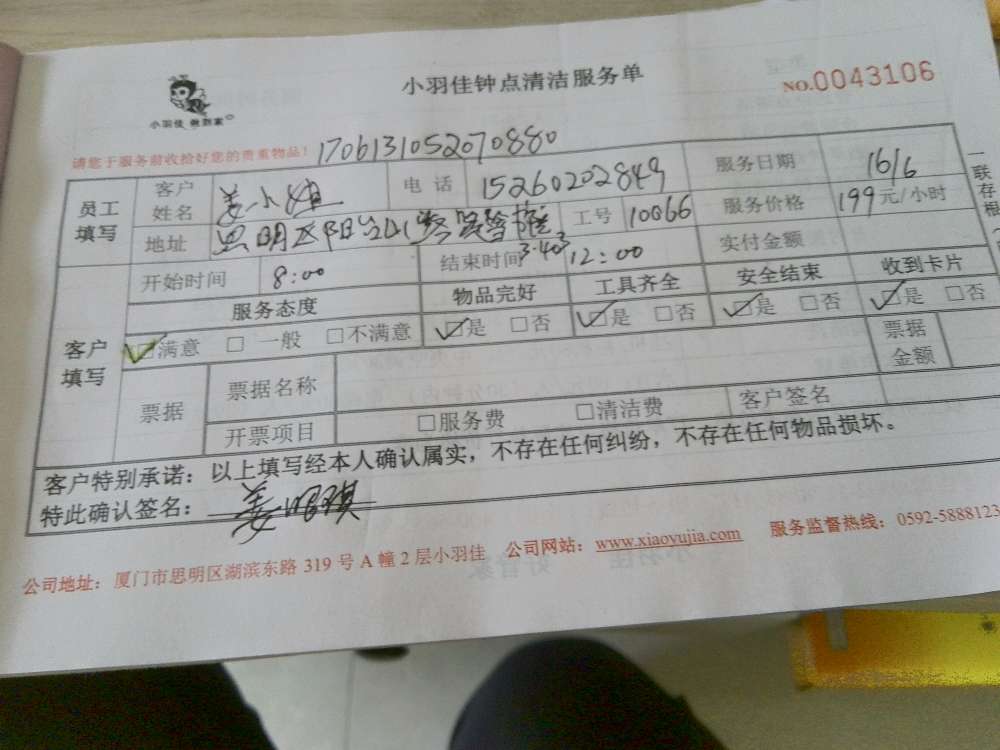 小羽佳钟点清洁服务单
NO.0043106
小羽佳 做到家
请您于服务前收拾好您的贵重物品! 170613105270880
员工填写 客户姓名 姜小姐 电话 15260202849 服务日期 16/6
地址 思明区阳台山路 工号 10866 服务价格 199元/小时
一联存根
客户填写 开始时间 8:00 结束时间 12:00 实付金额
服务态度 物品完好 工具齐全 安全结束 收到卡片
☑满意 □一般 □不满意 ☑是 □否 ☑是 □否 ☑是 □否 ☑是 □否
票据 票据名称 票据金额
开票项目 □服务费 □清洁费 客户签名
客户特别承诺：以上填写经本人确认属实，不存在任何纠纷，不存在任何物品损坏。
特此确认签名：姜明琪
公司地址：厦门市思明区湖滨东路 319 号 A 幢 2 层小羽佳 公司网站：www.xiaoyujia.com 服务监督热线：0592-5888123